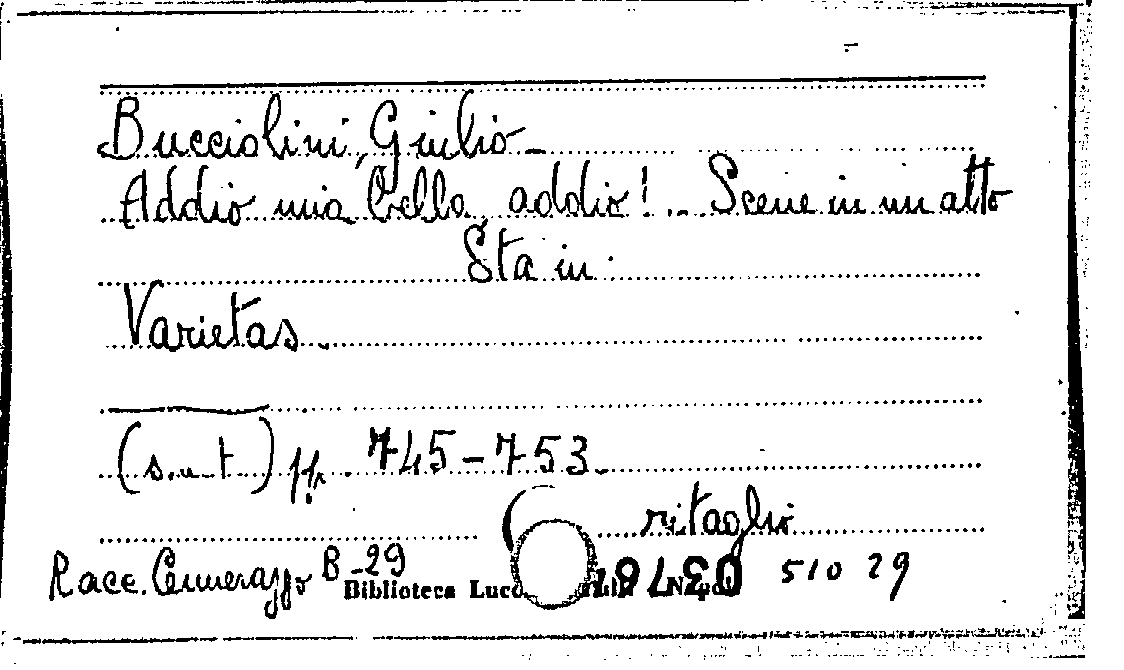 Bucciolini, Giulio -
Addio mia bella, addio! .. Scene in un atto
Sta in:
Varietas.
(s.n.t) pp. 745-753.
ritaglio
Racc. Cennerazzo B-29 Biblioteca Lucc 510 29